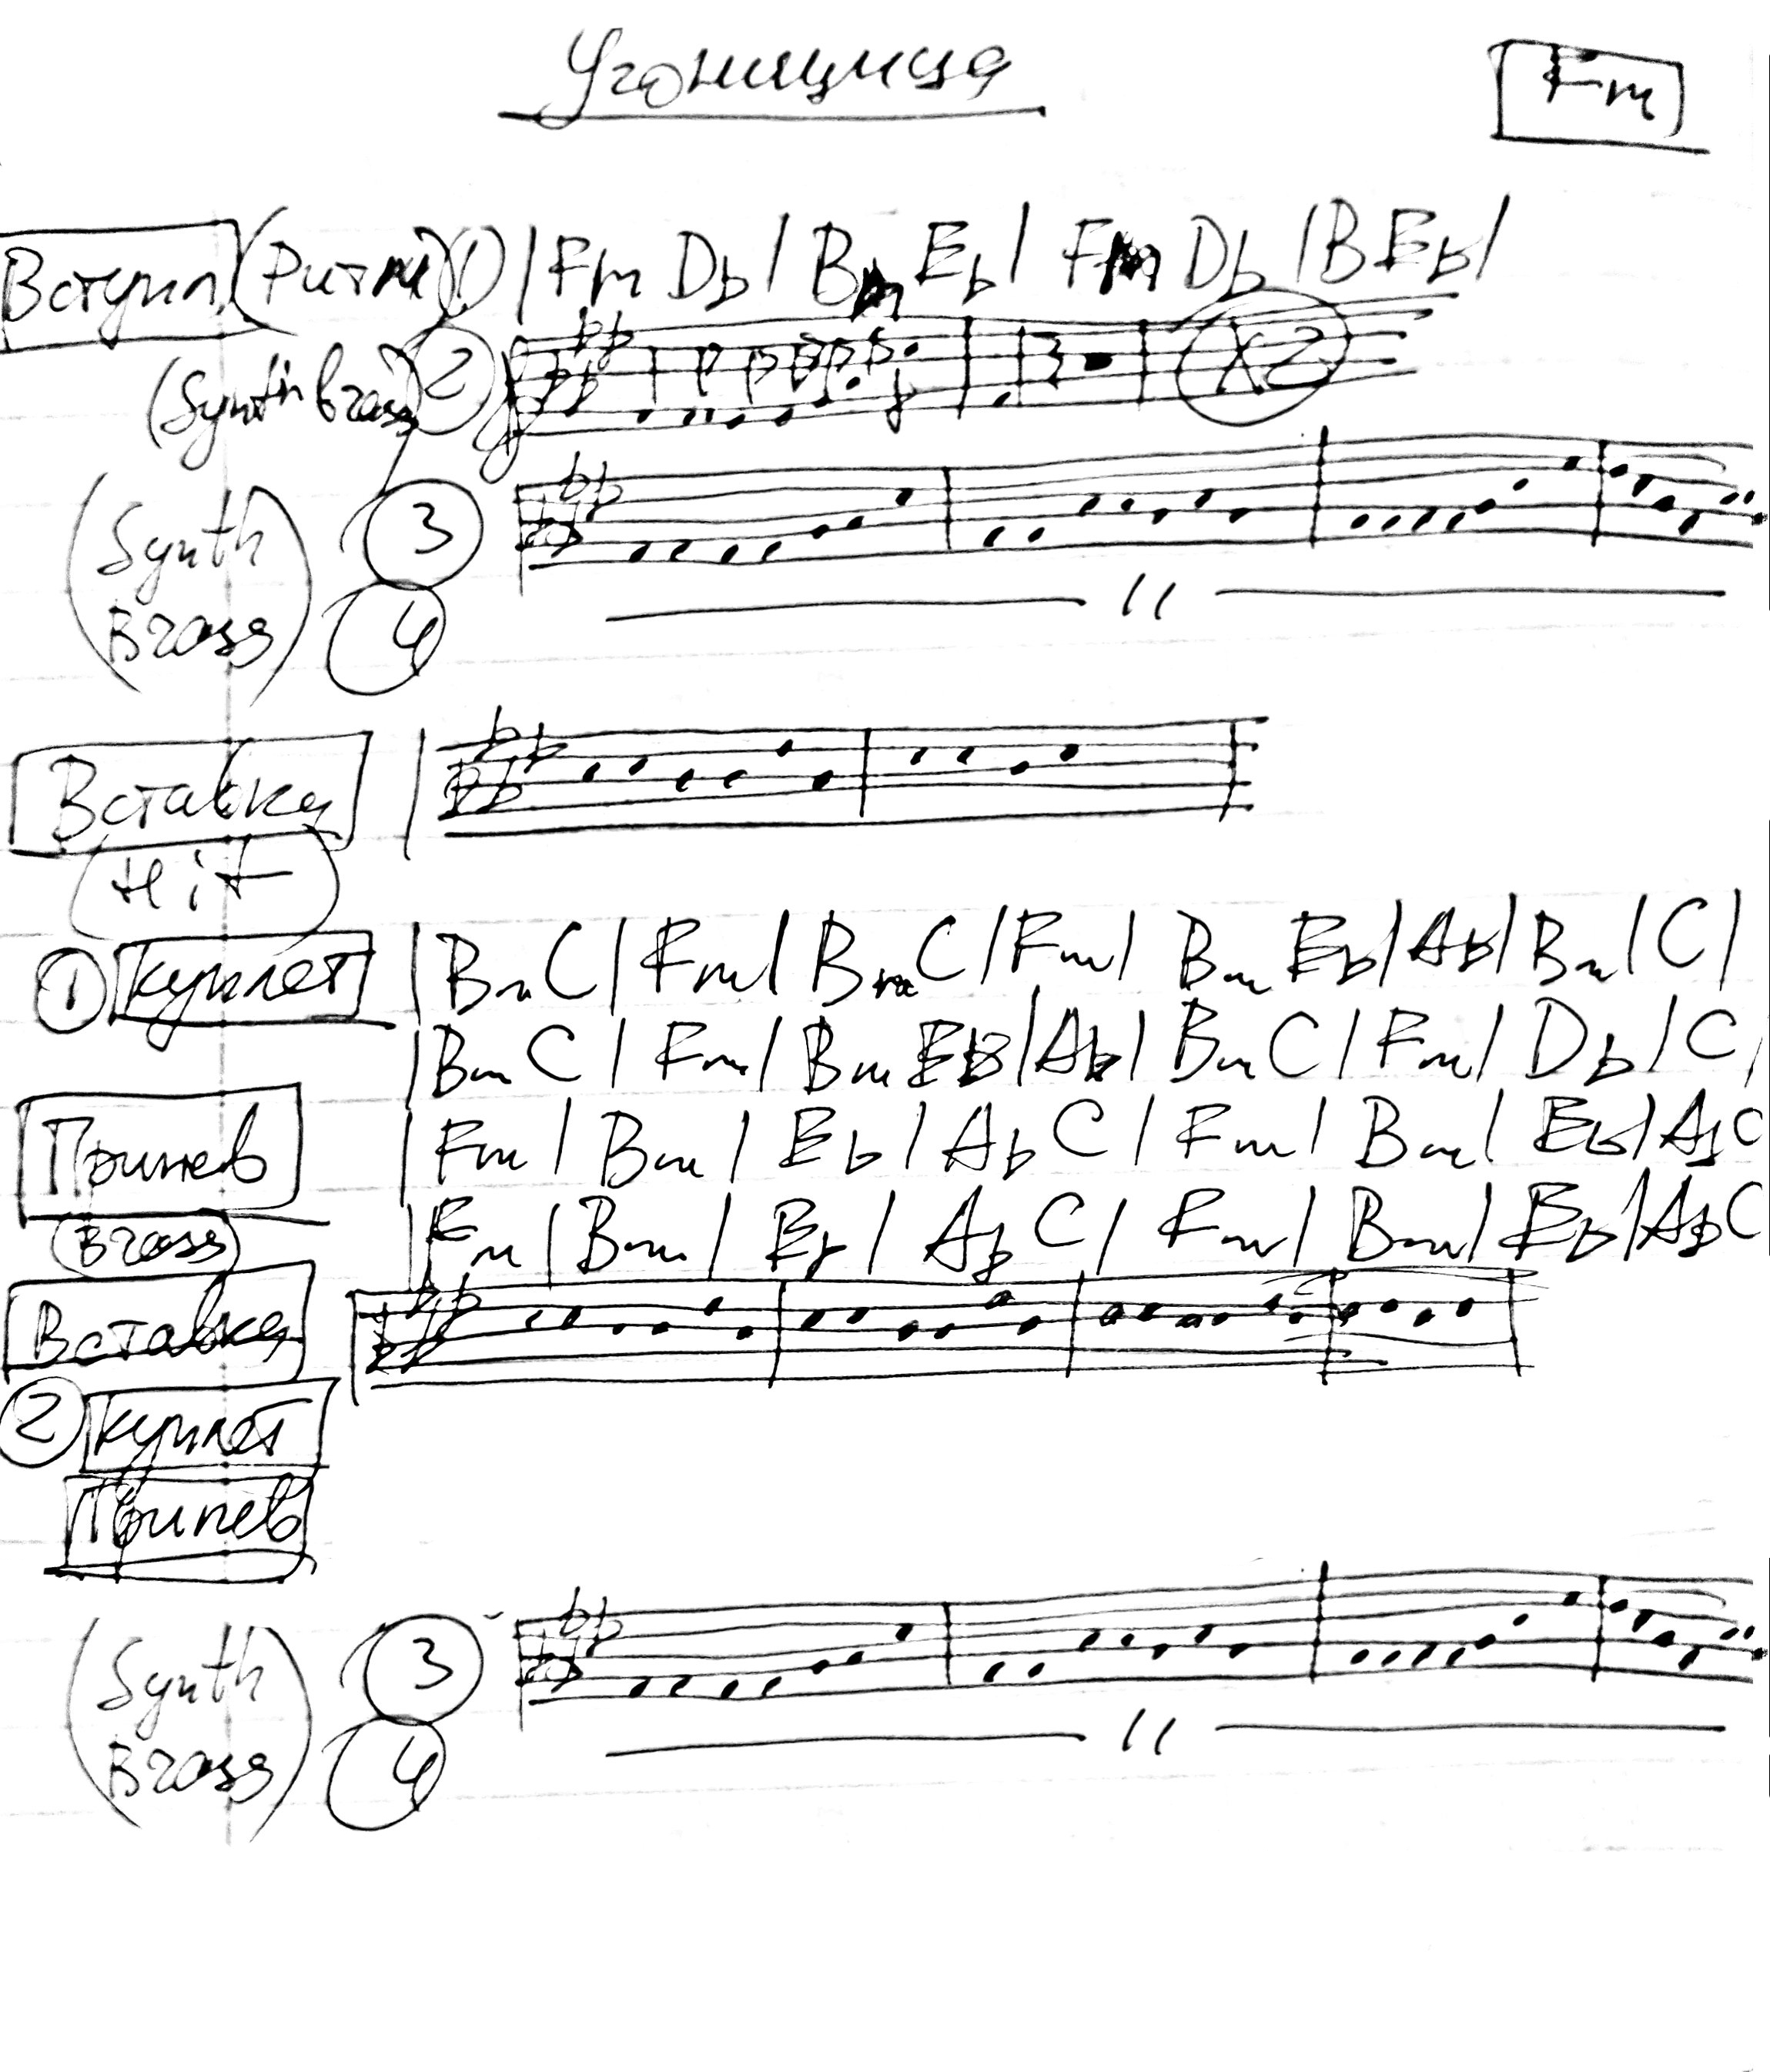 Угонщица
Fm
Вступл (Ритм) 1) | Fm Db | Bm Eb | Fm Db | B Eb |
(Synth brass) 2 x2
(Synth Brass) 3
4 〃
Вставка
(Hit)
1 Куплет | Bm C | Fm | Bm C | Fm | Bm Eb | Ab | Bm | C |
| Bm C | Fm | Bm Eb | Ab | Bm C | Fm | Db | C |
Припев | Fm | Bm | Eb | Ab C | Fm | Bm | Eb | Ab C
(Brass) | Fm | Bm | Eb | Ab C | Fm | Bm | Eb | Ab C
Вставка
2 Куплет
Припев
(Synth Brass) 3
4 〃